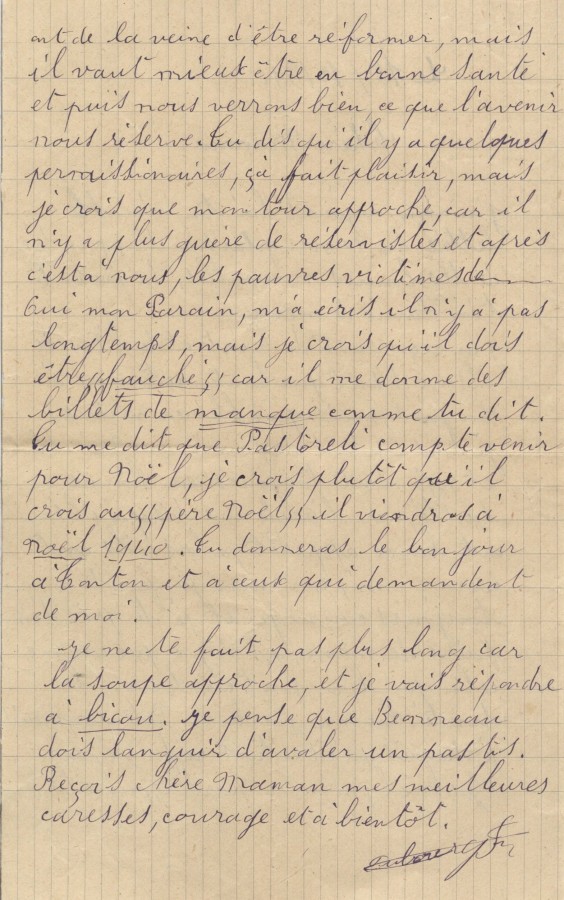 ont de la veine d'être réformer, mais
il vaut mieux être en bonne santé
et puis nous verrons bien, ce que l'avenir
nous réserve. Tu dis qu'il y a quelques
permissionaires, çà fait plaisir, mais
je crois que mon tour approche, car il
n'y a plus guère de réservistes et après
c'est à nous, les pauvres victimes de
Oui mon Parain, m'a écris il n'y a pas
longtemps, mais je crois qu'il dois
être "fauché", car il me donne des
billets de manque comme tu dit.
Tu me dit que Pastoreli compte venir
pour Noël, je crois plutôt qu'il
crois au "père Noël" il viendras à
Noël 1940. Tu donneras le bonjour
à Tonton et à ceux qui demandent
de moi.
Je ne te fait pas plus long car
la soupe approche, et je vais répondre
à bicou. Je pense que Beonneau
dois languir d'avaler un pastis.
Reçois chère Maman mes meilleures
caresses, courage et à bientôt.